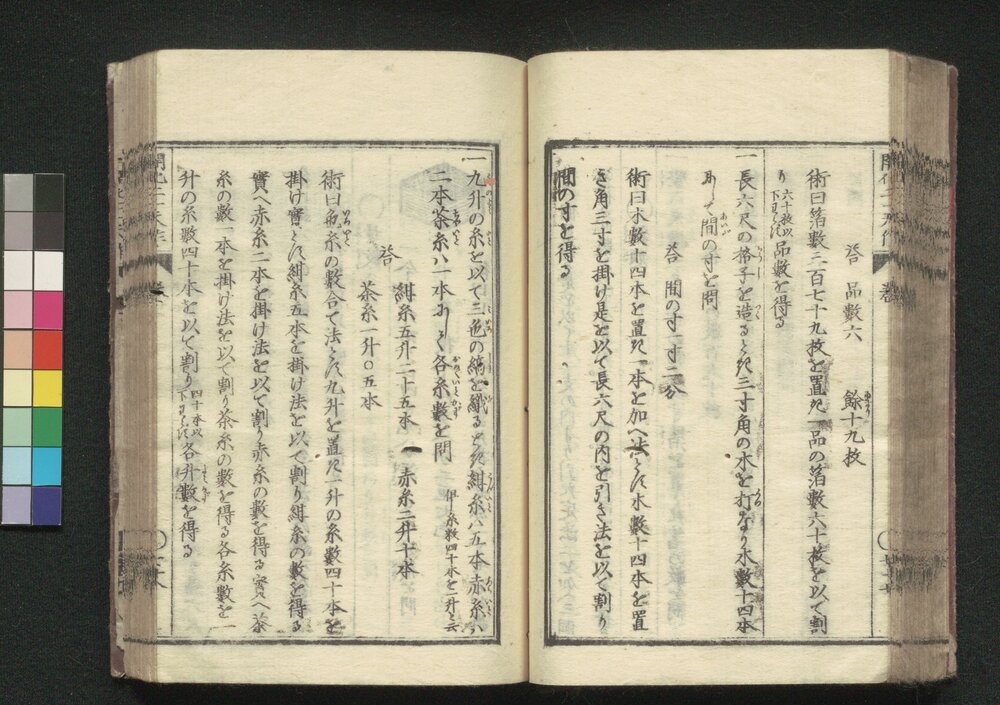 答 品數六 餘十九枚
術曰箔數三百七十九枚を置き一品の箔數六十枚を以て割
り六十枚以下可る品數を得る
一長六尺の格子を造ると起三寸角の木を打なり木數十四本
あして間の寸を問
答 間の寸一寸二分
術曰木數十四本を置起一本を加へ法とし木數十四本を置
き角三寸を掛け是を以て長六尺の内を引き法を以て割り
間の寸を得る
一九升の糸を以て三色の縞を織ると起紺糸ハ五本赤糸ハ
二本茶糸ハ一本あして各糸數を問 但し糸數四十本を一升と云
答 紺糸五升二十五本 赤糸二升十本
茶糸一升〇五本
術曰色糸の數合て法とし九升を置起一升の糸數四十本を
掛け實とし紺糸五本を掛け法を以て割り紺糸の數を得る
實へ赤糸二本を掛け法を以て割り赤糸の數を得る實へ茶
糸の數一本を掛け法を以て割り茶糸の數を得る各糸數を一
升の糸數四十本を以て割り四十本以下可る各升數を得る